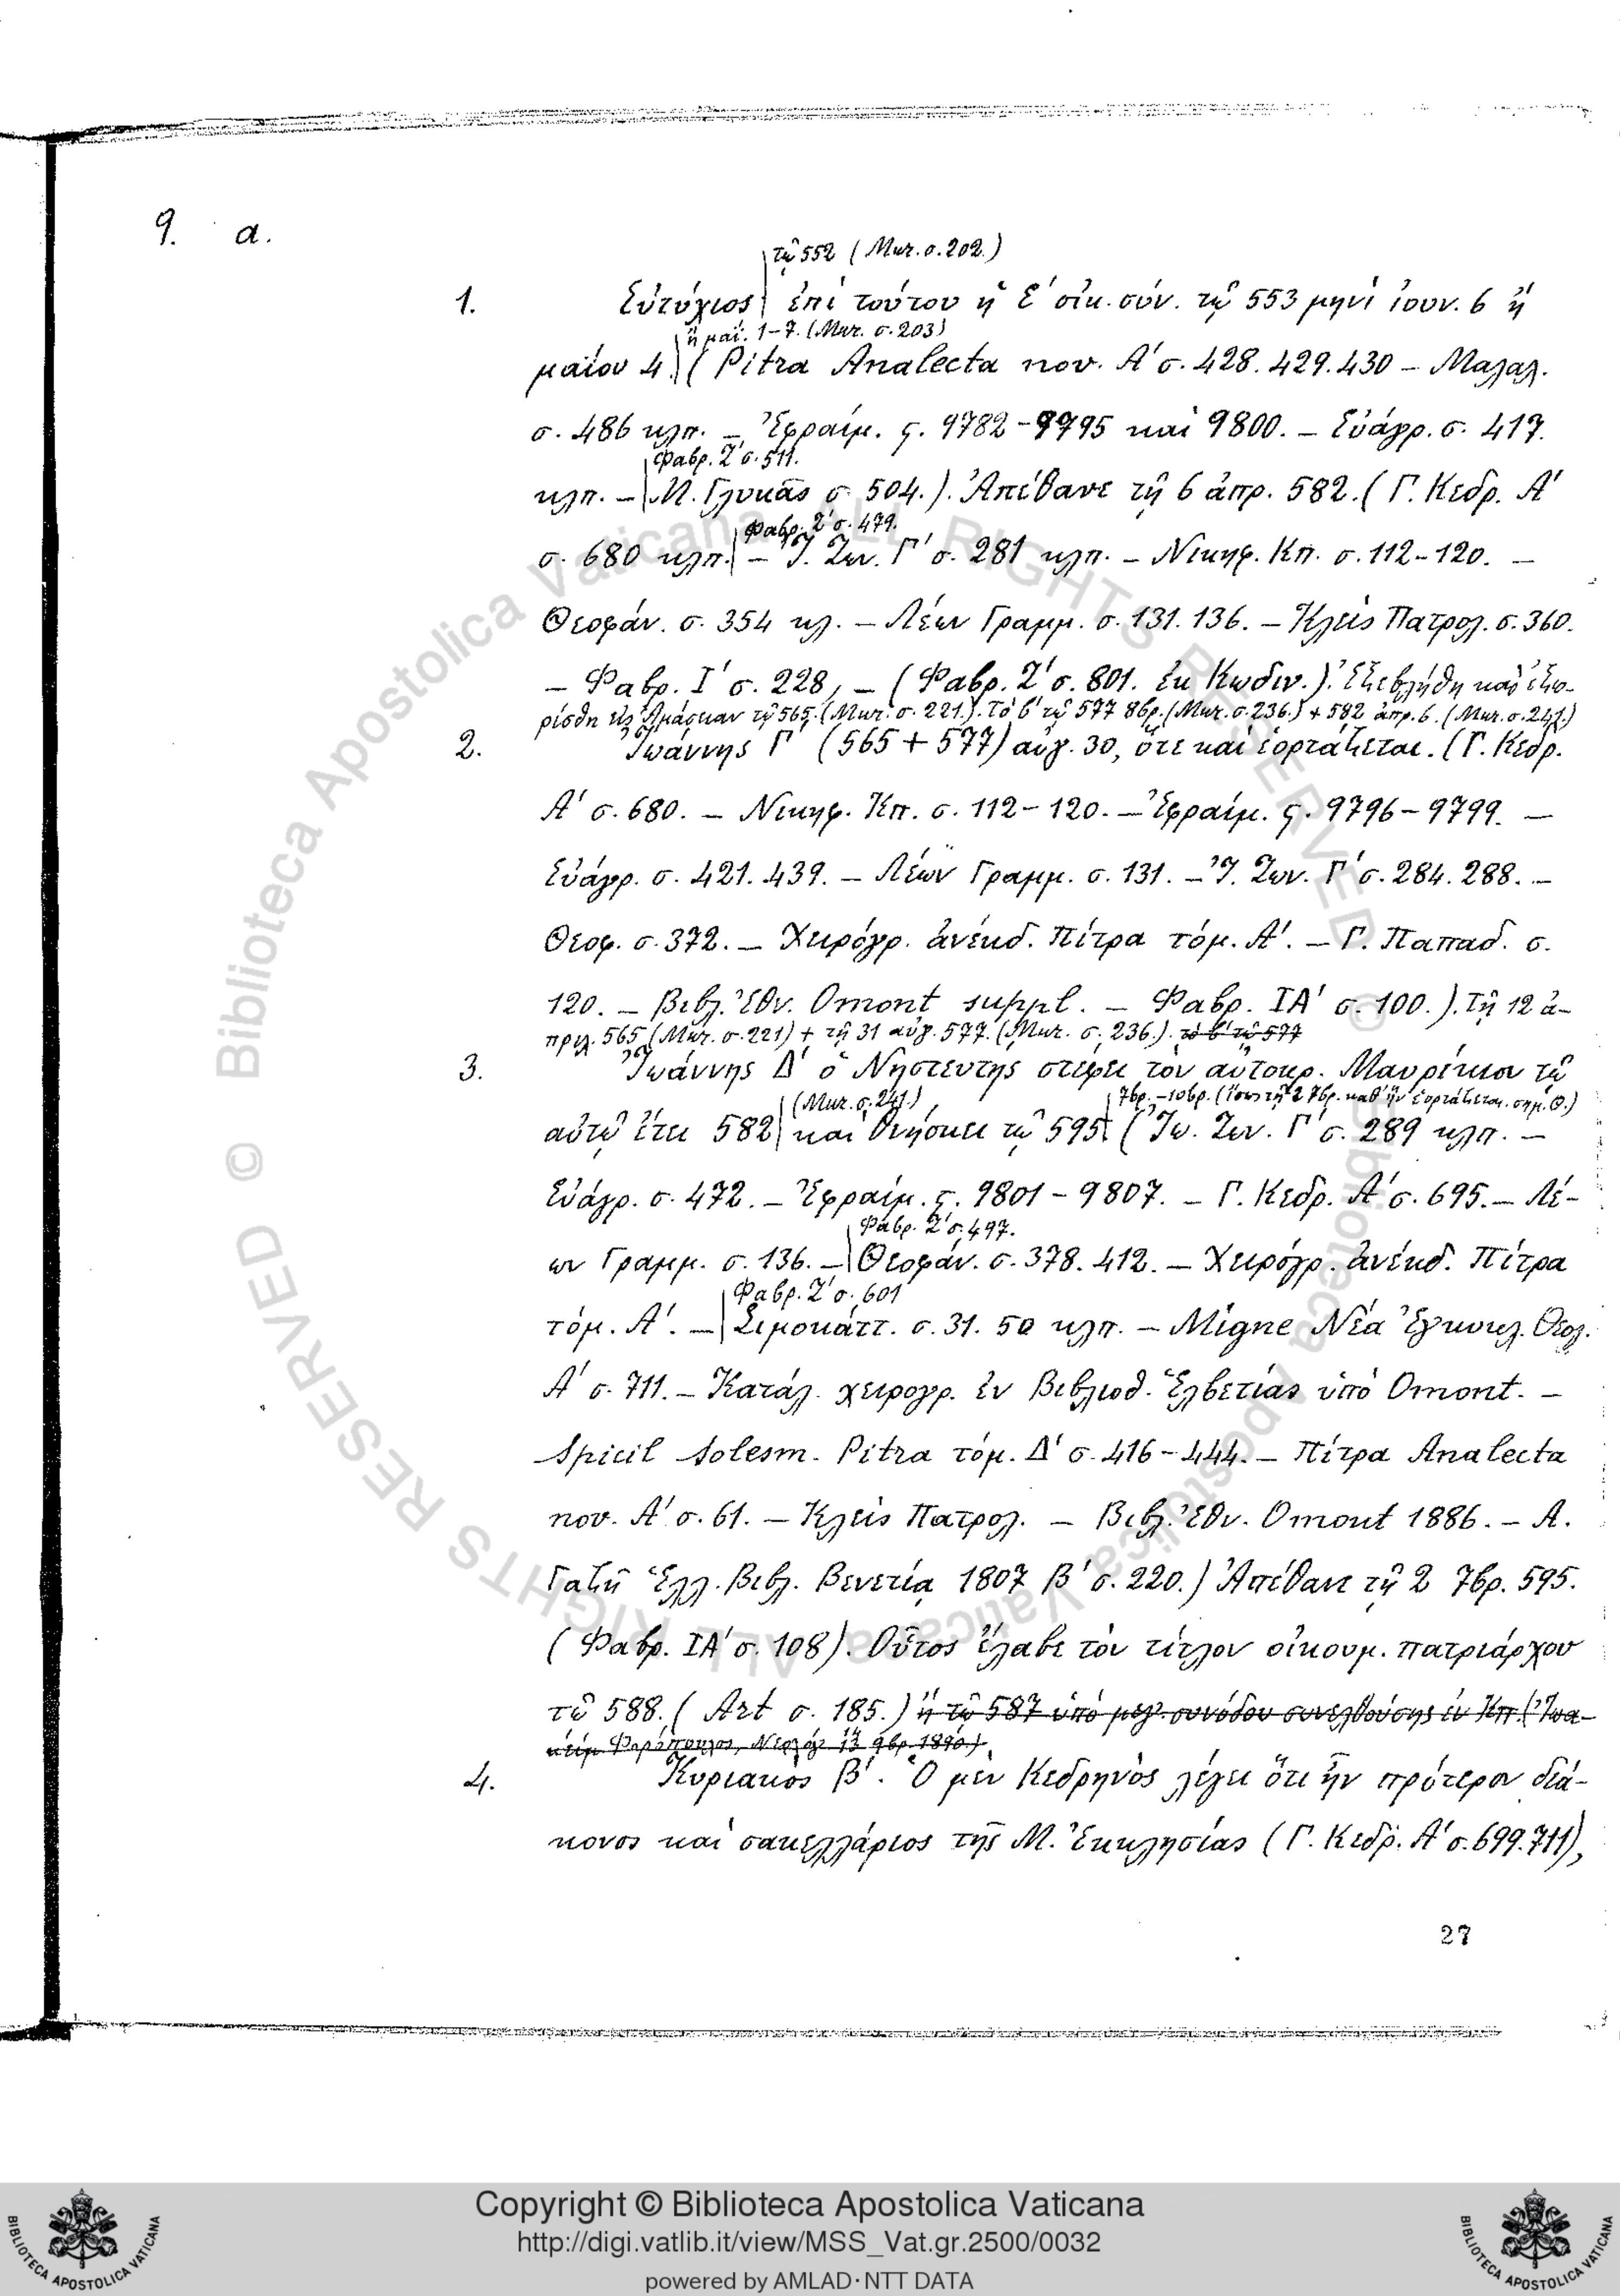 9. α.
τῷ 552 (Μυτ. σ. 202.)
1. Εὐτύχιος ἐπὶ τούτου ἡ Ε΄ οἰκ. σύν. τῷ 553 μηνὶ ἰουν. 6 ἢ
ἢ μαΐ. 1-7. (Μυτ. σ. 203)
μαΐου 4. (Pitra Analecta nov. Α΄ σ. 428. 429. 430 – Μαλαλ.
σ. 486 κλπ. – Ἐφραίμ. ς. 9782-9795 καὶ 9800. – Εὐάγρ. σ. 417.
Φαβρ. Ζ΄ σ. 511.
κλπ. – Μ. Γλυκᾶς σ. 504.). Ἀπέθανε τῇ 6 ἀπρ. 582. (Γ. Κεδρ. Α΄
Φαβρ. Ζ΄ σ. 479.
σ. 680 κλπ. – Ἰ. Ζων. Γ΄ σ. 281 κλπ. – Νικηφ. Κπ. σ. 112-120. –
Θεοφάν. σ. 354 κλ. – Λέων Γραμμ. σ. 131. 136. – Κλεὶς Πατρολ. σ. 360.
– Φαβρ. Ι΄ σ. 228, – (Φαβρ. Ζ΄ σ. 801. ἐκ Κωδιν.). Ἐξεβλήθη καὶ ἐξω-
ρίσθη εἰς Ἀμάσειαν τῷ 565. (Μυτ. σ. 221.). Τὸ β΄ τῷ 577 8βρ. (Μυτ. σ. 236.) + 582 ἀπρ. 6. (Μυτ. σ. 241.)
2. Ἰωάννης Γ΄ (565 + 577) αὐγ. 30, ὅτε καὶ ἑορτάζεται. (Γ. Κεδρ.
Α΄ σ. 680. – Νικηφ. Κπ. σ. 112-120. – Ἐφραίμ. ς. 9796-9799. –
Εὐάγρ. σ. 421. 439. – Λέων Γραμμ. σ. 131. – Ἰ. Ζων. Γ΄ σ. 284. 288. –
Θεοφ. σ. 372. – Χειρόγρ. ἀνέκδ. Πίτρα τόμ. Α΄. – Γ. Παπαδ. σ.
120. – Βιβλ. Ἐθν. Omont suppl. – Φαβρ. ΙΑ΄ σ. 100.). Τῇ 12 ἀ-
πριλ. 565 (Μυτ. σ. 221) + τῇ 31 αὐγ. 577. (Μυτ. σ. 236.). τὸ β΄ τῷ 577
3. Ἰωάννης Δ΄ ὁ Νηστευτής στέφει τὸν αὐτοκρ. Μαυρίκιον τῷ
(Μυτ. σ. 241.) 7βρ.-10βρ. (ἴσως τῇ 2 7βρ. καθ' ἣν ἑορτάζεται. σημ. Θ.)
αὐτῷ ἔτει 582 καὶ θνήσκει τῷ 595 (Ἰω. Ζων. Γ΄ σ. 289 κλπ. –
Εὐάγρ. σ. 472. – Ἐφραίμ. ς. 9801-9807. – Γ. Κεδρ. Α΄ σ. 695. – Λέ-
Φαβρ. Ζ΄ σ. 497.
ων Γραμμ. σ. 136. – Θεοφάν. σ. 378. 412. – Χειρόγρ. ἀνέκδ. Πίτρα
Φαβρ. Ζ΄ σ. 601
τόμ. Α΄. – Σιμοκάττ. σ. 31. 50 κλπ. – Migne Νέα Ἐγκυκλ. Θεολ.
Α΄ σ. 711. – Κατάλ. χειρογρ. ἐν Βιβλιοθ. Ἑλβετίας ὑπὸ Omont. –
Spicil Solesm. Pitra τόμ. Δ΄ σ. 416-444. – Πίτρα Analecta
nov. Α΄ σ. 61. – Κλεὶς Πατρολ. – Βιβλ. Ἐθν. Omont 1886. – Α.
Γαζῆ Ἑλλ. Βιβλ. Βενετίᾳ 1807 Β΄ σ. 220.) Ἀπέθανε τῇ 2 7βρ. 595.
(Φαβρ. ΙΑ΄ σ. 108). Οὗτος ἔλαβε τὸν τίτλον οἰκουμ. πατριάρχου
τῷ 588. (Art σ. 185.) ἢ τῷ 587 ὑπὸ μεγ. συνόδου συνελθούσης ἐν Κπ. (Ἰωα-
κεὶμ Φορόπουλος, Νεολόγ. 13 9βρ. 1890)
4. Κυριακὸς Β΄. Ὁ μὲν Κεδρηνὸς λέγει ὅτι ἦν πρότερον διά-
κονος καὶ σακελλάριος τῆς Μ. Ἐκκλησίας (Γ. Κεδρ. Α΄ σ. 699. 711),
27
© Biblioteca Apostolica Vaticana ALL RIGHTS RESERVED
© Biblioteca Apostolica Vaticana ALL RIGHTS RESERVED
Copyright © Biblioteca Apostolica Vaticana
http://digi.vatlib.it/view/MSS_Vat.gr.2500/0032
powered by AMLAD·NTT DATA
BIBLIOTECA APOSTOLICA VATICANA
BIBLIOTECA APOSTOLICA VATICANA